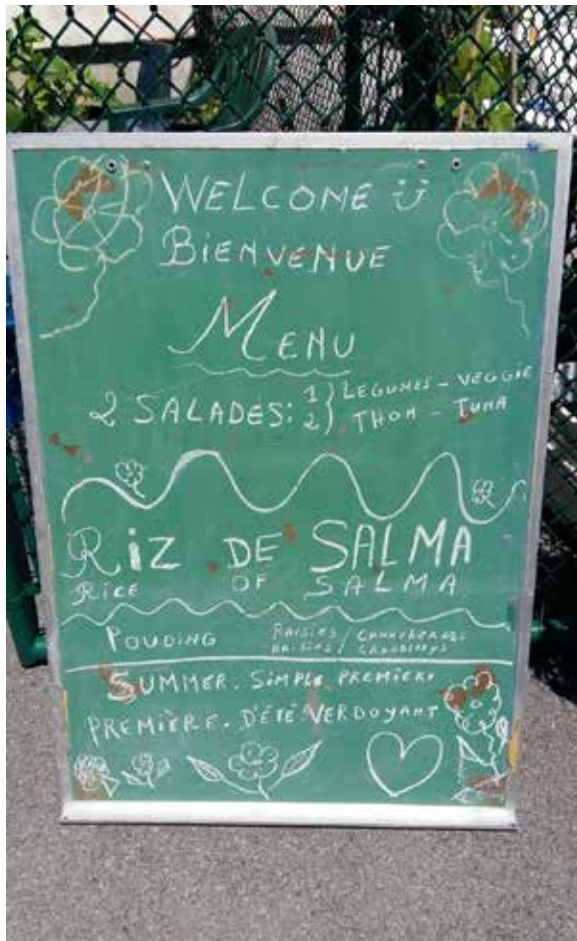 WELCOME
BIENVENUE
MENU
2 SALADES: 1) LEGUMES - VEGGIE
2) THON - TUNA
RIZ DE SALMA
RICE OF SALMA
POUDING RAISINS / CANNEBERGES
RAISINS CRANBERRYS
SUMMER. SIMPLE PREMIERE
PREMIÈRE. D'ÉTÉ. VERDOYANT